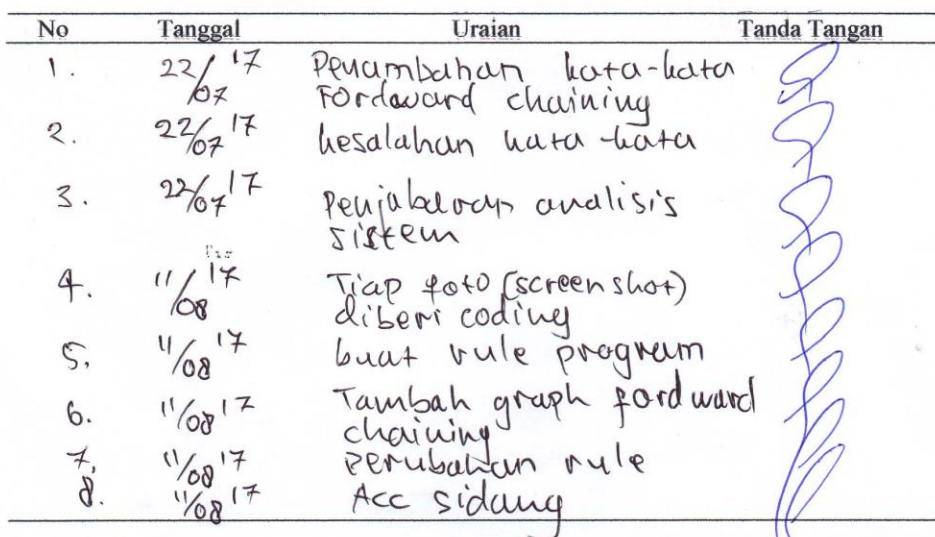 No Tanggal Uraian Tanda Tangan
1. 22/07 17 Penambahan kata-kata
Fordoward chaining
2. 22/07 17 kesalahan kata-kata
3. 22/07 17 Penjabaran analisis
sistem
4. 11/08 17 Tiap foto (screen shot)
diberi coding
5. 11/08 17 buat rule program
6. 11/08 17 Tambah graph fordward
chaining
7. 11/08 17 Perubahan rule
8. 11/08 17 Acc sidang